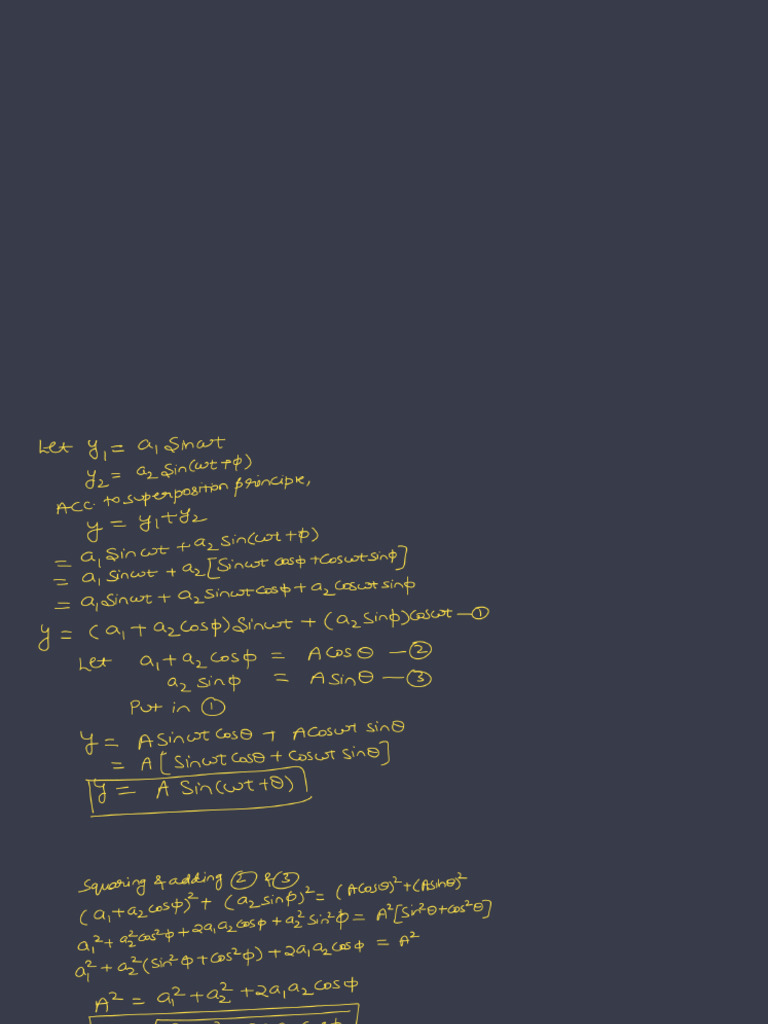 Let y₁ = a₁ Sinωt
y₂ = a₂ Sin(ωt+ϕ)
Acc. to superposition principle,
y = y₁+y₂
= a₁ Sinωt + a₂ sin(ωt+ϕ)
= a₁ Sinωt + a₂[Sinωt cosϕ+Cosωt sinϕ]
= a₁Sinωt + a₂Sinωt Cosϕ + a₂ Cosωt sinϕ
y = (a₁ + a₂Cosϕ)Sinωt + (a₂ Sinϕ)cosωt — ①
Let a₁ + a₂ Cosϕ = A Cos θ — ②
a₂ sinϕ = A Sinθ — ③
Put in ①
y = A Sinωt Cosθ + A Cosωt sinθ
= A[Sinωt Cosθ + Cosωt Sinθ]
y = A Sin(ωt+θ)
Squaring & adding ② & ③
(a₁+a₂cosϕ)² + (a₂sinϕ)² = (Acosθ)²+(Asinθ)²
a₁² + a₂²cos²ϕ + 2a₁a₂cosϕ + a₂² sin²ϕ = A²[Sin²θ+cos²θ]
a₁² + a₂²(sin²ϕ + cos²ϕ) + 2a₁a₂cosϕ = A²
A² = a₁² + a₂² + 2a₁a₂cosϕ